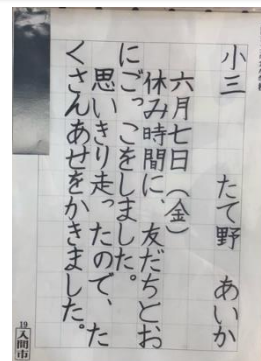 小三　たて野　あいか
六月七日（金）
休み時間に、友だちとお
にごっこをしました。
思いきり走ったので、た
くさんあせをかきました。
19 入間市